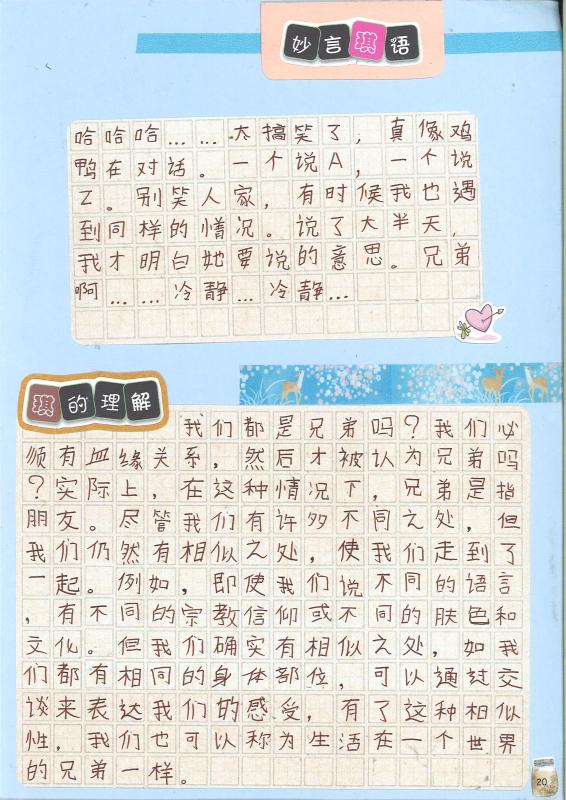 妙言琪语
哈哈哈……太搞笑了，真像鸡
鸭在对话。一个说A，一个说
Z。别笑人家，有时候我也遇
到同样的情况。说了大半天，
我才明白她要说的意思。兄弟
啊……冷静…冷静…
琪的理解
我们都是兄弟吗？我们必
须有血缘关系，然后才被认为兄弟吗
？实际上，在这种情况下，兄弟是指
朋友。尽管我们有许多不同之处，但
我们仍然有相似之处，使我们走到了
一起。例如，即使我们说不同的语言
，有不同的宗教信仰或不同的肤色和
文化。但我们确实有相似之处，如我
们都有相同的身体部位，可以通过交
谈来表达我们的感受，有了这种相似
性，我们也可以称为生活在一个世界
的兄弟一样。
20